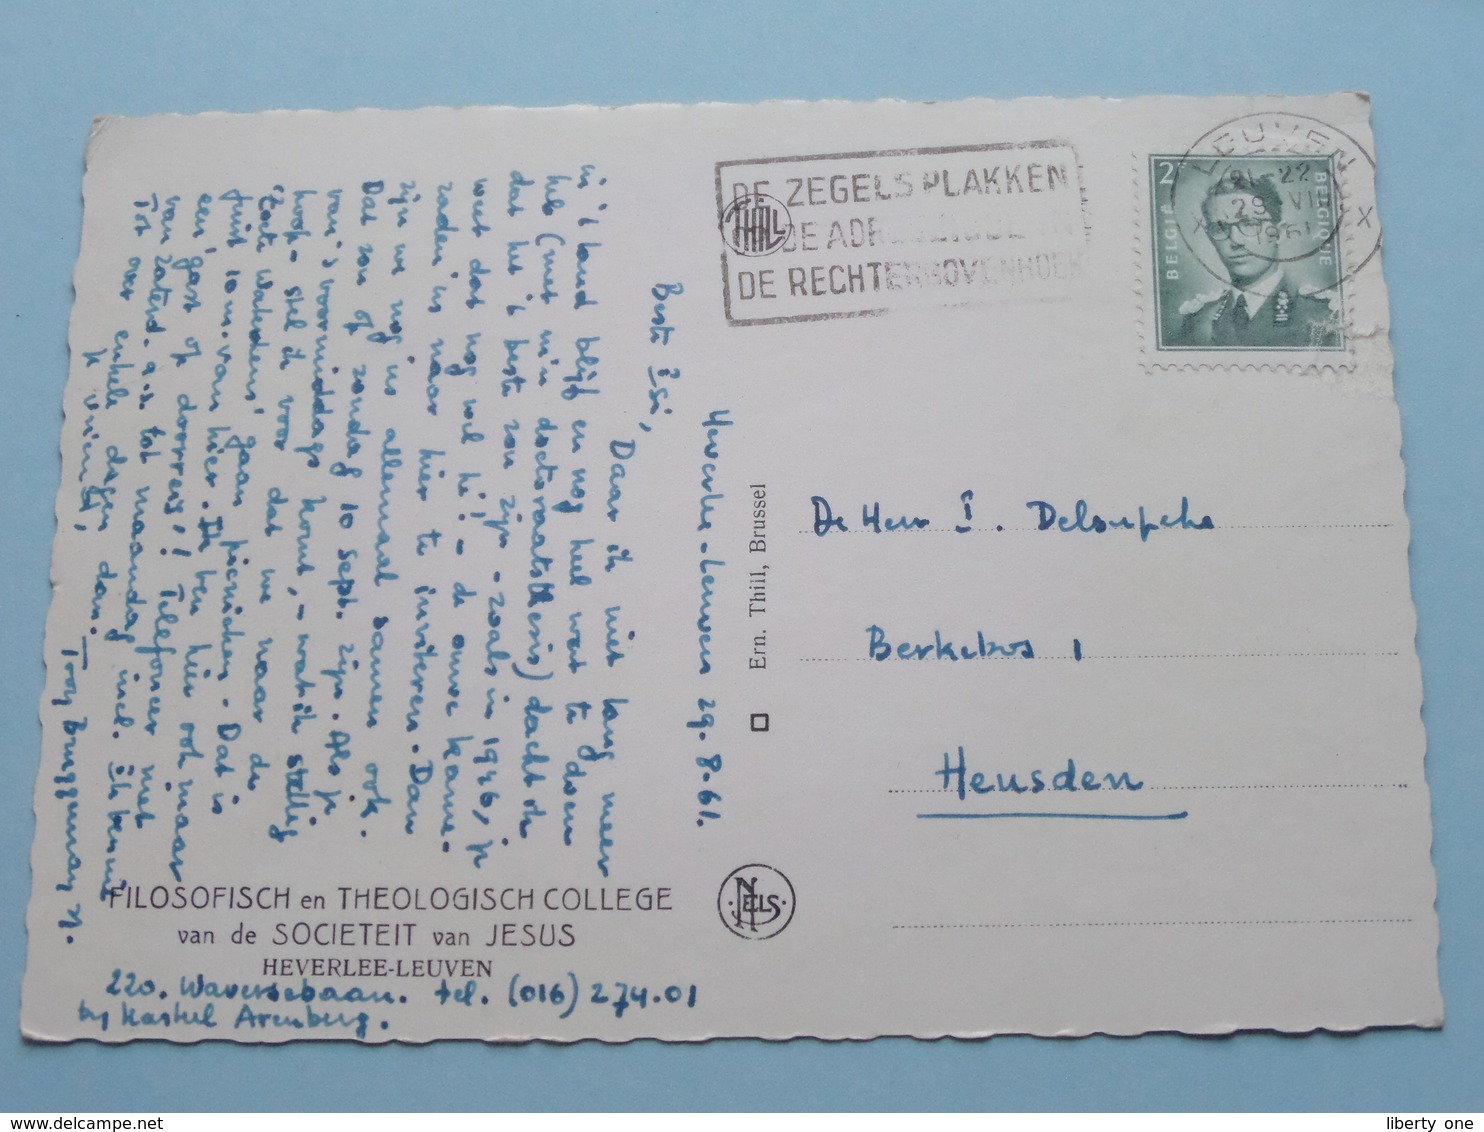 Heverlee-Leuven 29.8.61.
Beste Isi,
Daar ik niet lang meer
in 't land blijf en nog heel wat te doen
heb (met m'n doctoraatsthesis) dacht ik
dat het 't beste zou zijn - zoals in 1946, je
weet dat nog wel hé, - de onze kame-
raden 'ns naar hier te inviteren. Dan
zijn we nog 'ns allemaal samen ook.
Dat zou op zondag 10 sept. zijn. Als je
van 's voormiddags komt, - wat ik stellig
hoop - stel ik voor dat we naar de
Zoete Waters gaan picnicken. Dat is
juist 10 m. van hier. Ik ben hier ook maar
een gast op doorreis! Telefoneer niet
van zaterd. a.s. tot maandag incl. Ik ben
Tot over enkele dagen dan.
je vriend,
FILOSOFISCH en THEOLOGISCH COLLEGE
van de SOCIETEIT van JESUS
HEVERLEE-LEUVEN
220. Waversebaan. tel. (016) 274.01
bij Kasteel Arenberg.
Ern. Thill, Brussel
NELS
THILL
DE ZEGELS PLAKKEN
DE RECHTERBOVENHOEK
LEUVEN
21-22
29 VIII
1961
X X
2F
BELGIË
BELGIQUE
De Heer I. Delsupehe
Berkebos 1
Heusden
liberty one